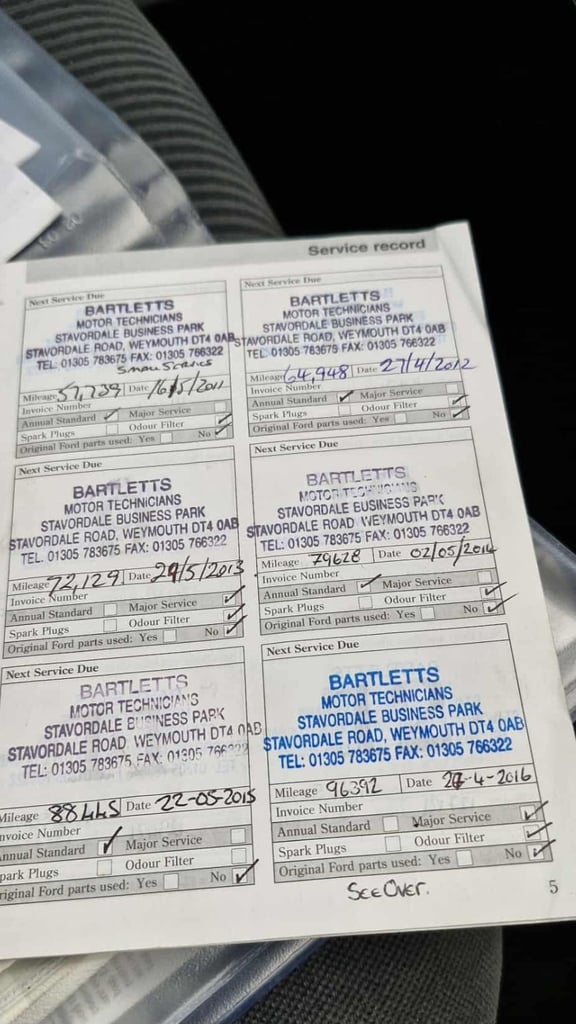 Service record
Next Service Due
BARTLETTS
MOTOR TECHNICIANS
STAVORDALE BUSINESS PARK
STAVORDALE ROAD, WEYMOUTH DT4 0AB
TEL: 01305 783675 FAX: 01305 766322
Small Service
Mileage 57,739 Date 16/5/2011
Invoice Number
Annual Standard ✓ Major Service
Spark Plugs Odour Filter ✓
Original Ford parts used: Yes No ✓
Next Service Due
BARTLETTS
MOTOR TECHNICIANS
STAVORDALE BUSINESS PARK
STAVORDALE ROAD, WEYMOUTH DT4 0AB
TEL: 01305 783675 FAX: 01305 766322
Mileage 64,948 Date 27/4/2012
Invoice Number
Annual Standard ✓ Major Service
Spark Plugs Odour Filter ✓
Original Ford parts used: Yes No ✓
Next Service Due
BARTLETTS
MOTOR TECHNICIANS
STAVORDALE BUSINESS PARK
STAVORDALE ROAD, WEYMOUTH DT4 0AB
TEL. 01305 783675 FAX: 01305 766322
Mileage 72,129 Date 29/5/2013
Invoice Number
Annual Standard Major Service ✓
Spark Plugs Odour Filter ✓
Original Ford parts used: Yes No ✓
Next Service Due
BARTLETTS
MOTOR TECHNICIANS
STAVORDALE BUSINESS PARK
STAVORDALE ROAD, WEYMOUTH DT4 0AB
TEL: 01305 783675 FAX: 01305 766322
Mileage 79628 Date 02/05/2014
Invoice Number
Annual Standard ✓ Major Service
Spark Plugs Odour Filter ✓
Original Ford parts used: Yes No ✓
Next Service Due
BARTLETTS
MOTOR TECHNICIANS
STAVORDALE BUSINESS PARK
STAVORDALE ROAD, WEYMOUTH DT4 0AB
TEL: 01305 783675 FAX: 01305 766322
Mileage 88445 Date 22-05-2015
nvoice Number
nnual Standard ✓ Major Service
park Plugs Odour Filter
riginal Ford parts used: Yes No ✓
Next Service Due
BARTLETTS
MOTOR TECHNICIANS
STAVORDALE BUSINESS PARK
STAVORDALE ROAD, WEYMOUTH DT4 0AB
TEL: 01305 783675 FAX: 01305 766322
Mileage 96392 Date 27-4-2016
Invoice Number
Annual Standard Major Service ✓
Spark Plugs Odour Filter ✓
Original Ford parts used: Yes No ✓
SEE OVER.
5